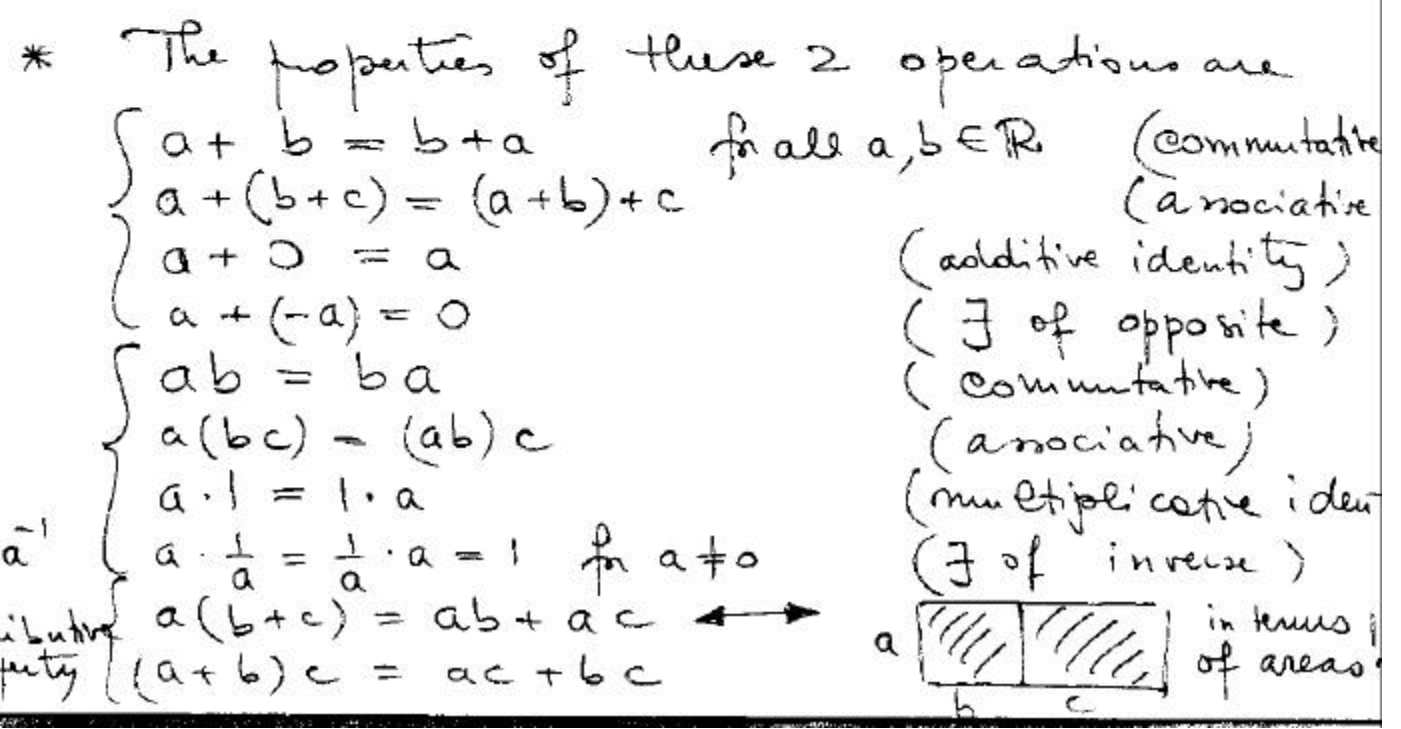 * The properties of these 2 operations are
a + b = b + a for all a, b ∈ ℝ (commutative
a + (b + c) = (a + b) + c (associative
a + 0 = a (additive identity)
a + (-a) = 0 (∃ of opposite)
ab = ba (commutative)
a(bc) = (ab)c (associative)
a · 1 = 1 · a (multiplicative iden
a⁻¹ a · 1/a = 1/a · a = 1 for a ≠ 0 (∃ of inverse)
ibutive a(b + c) = ab + ac ↔ a in terms
perty (a + b)c = ac + bc of areas
b c